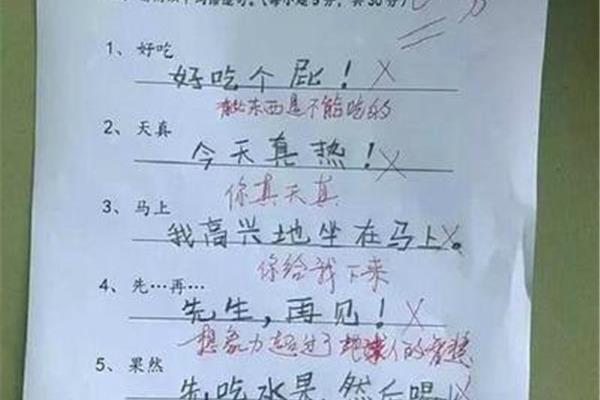 1、好吃
好吃个屁！
有些东西是不能吃的
2、天真
今天真热！
你真天真
3、马上
我高兴地坐在马上。
你给我下来
4、先…再…
先生，再见！
想象力超过了地球人的智慧
5、果然
先吃水果，然后喝